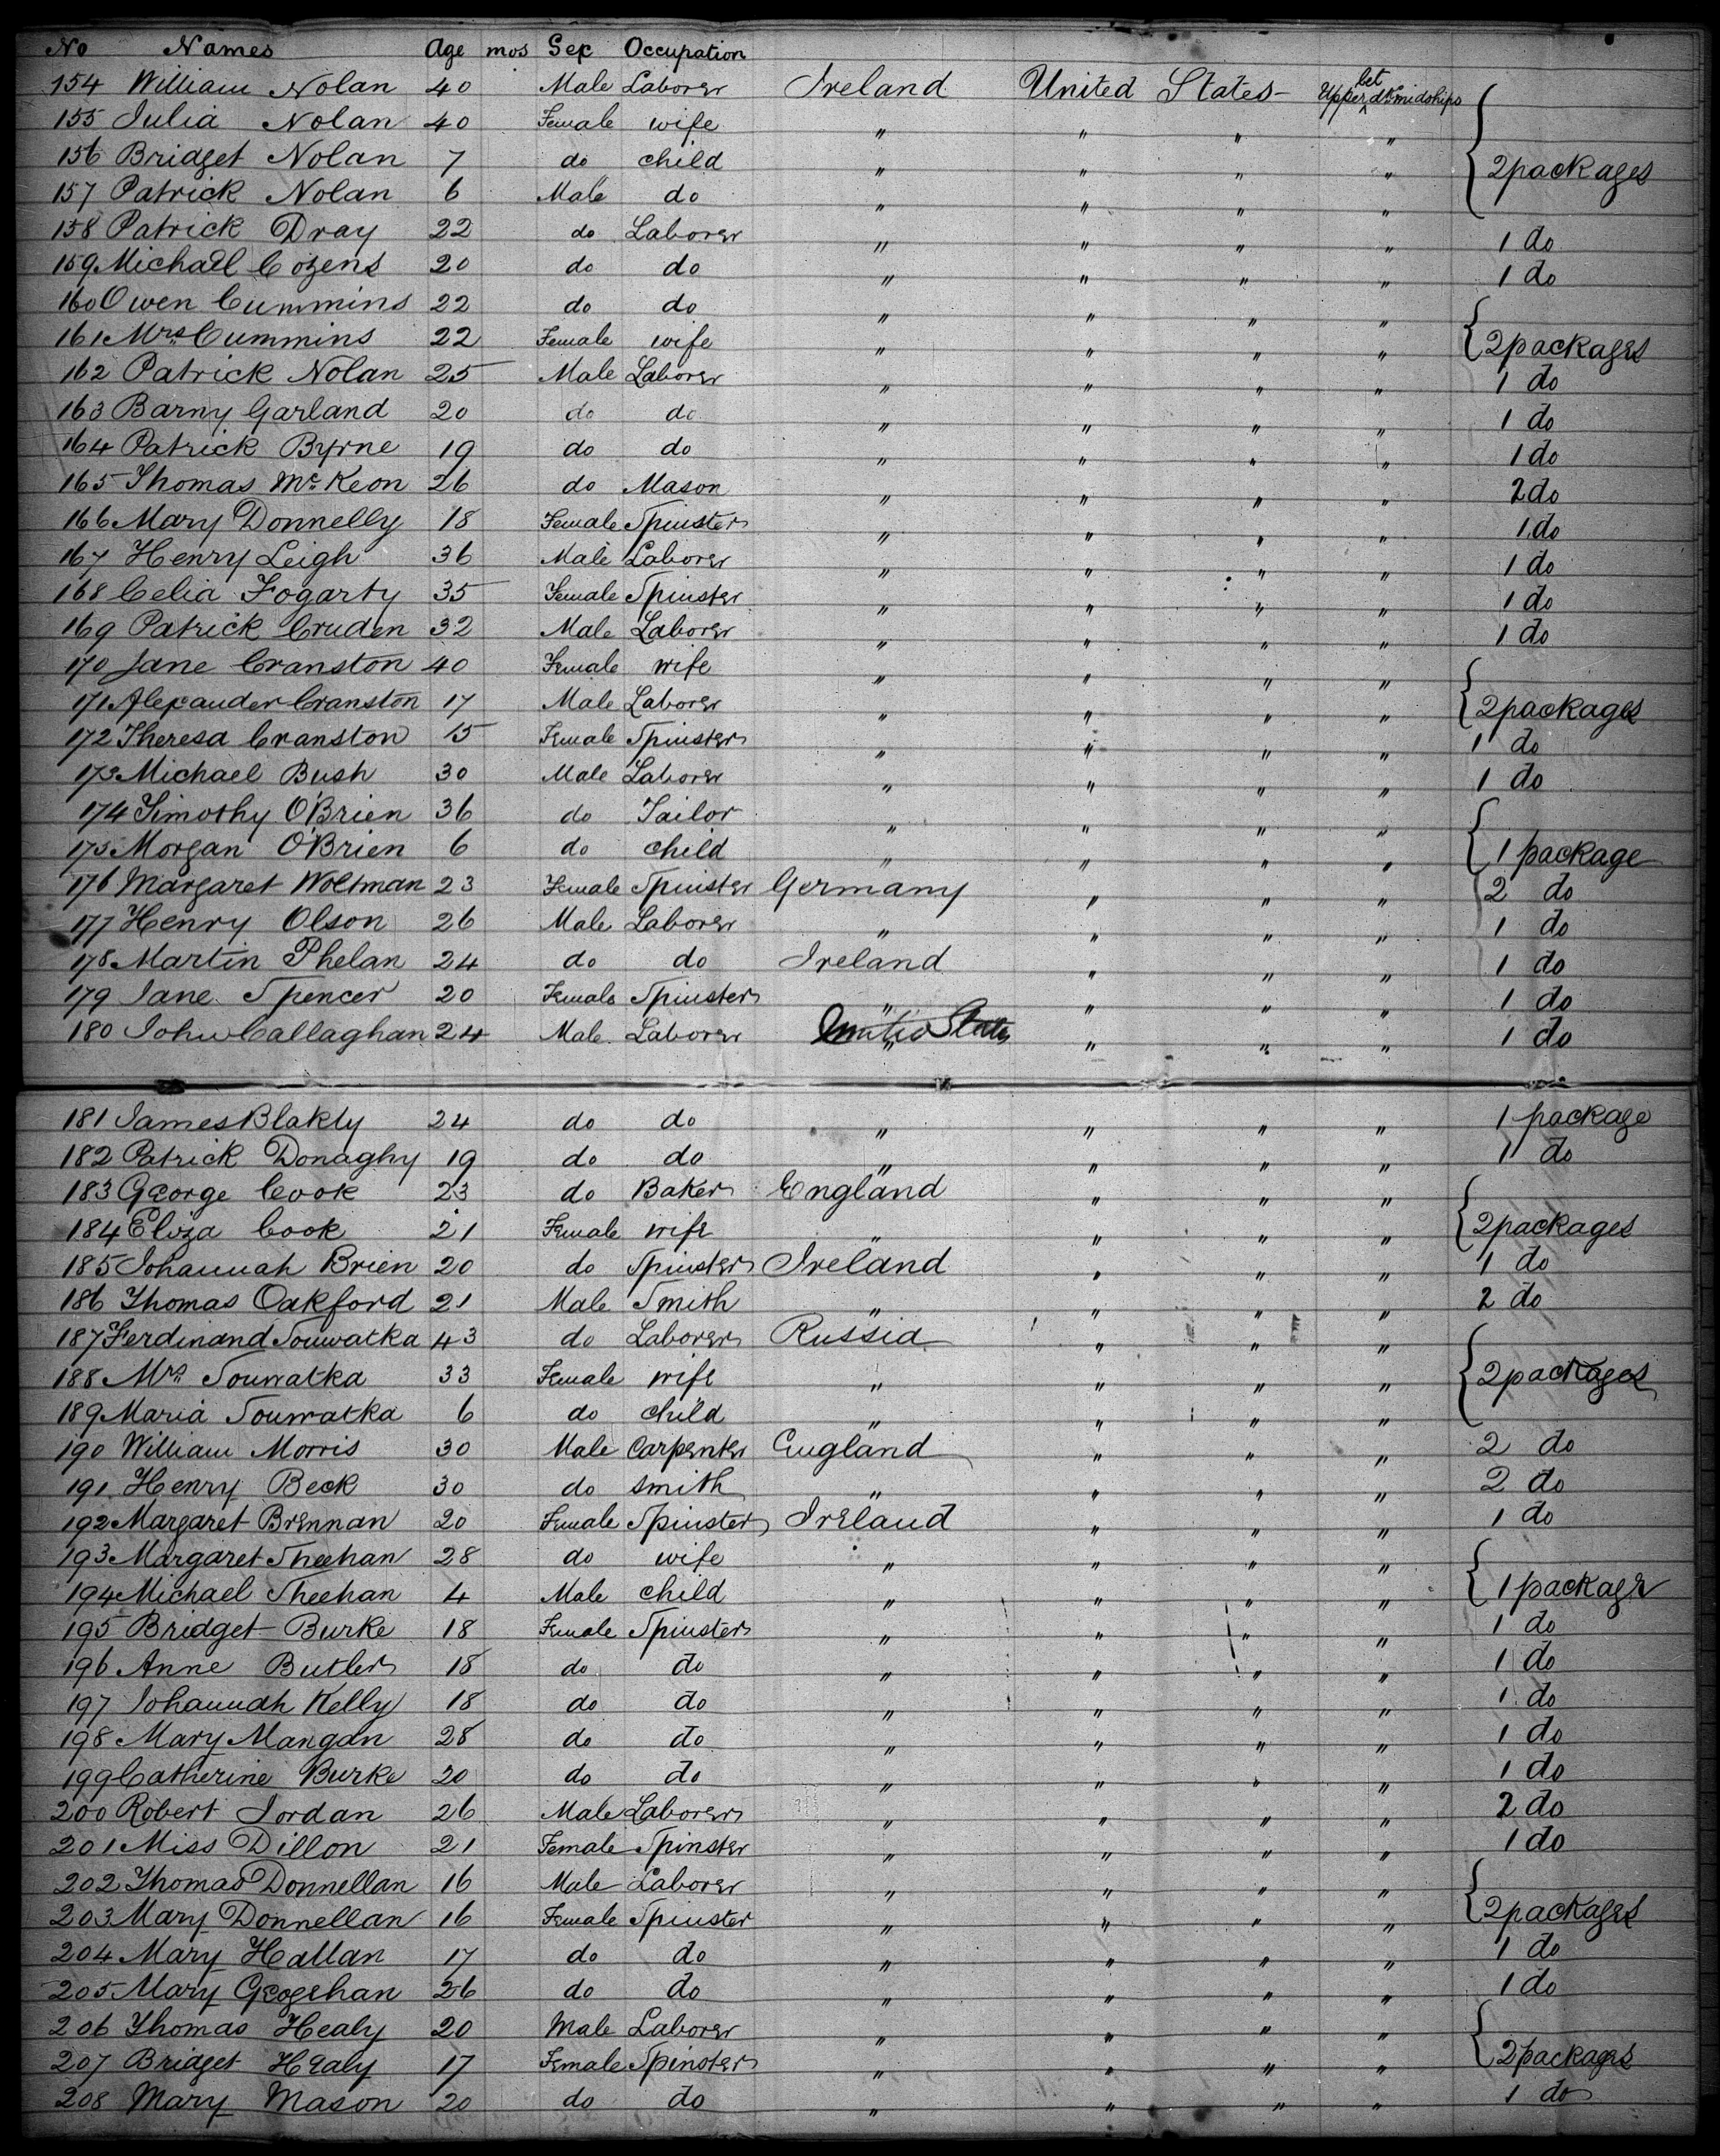 No Names Age mos Sex Occupation
154 William Nolan 40 Male Laborer Ireland United States Upper bet dk midships
155 Julia Nolan 40 Female wife " " " "
156 Bridget Nolan 7 do child " " " " 2 packages
157 Patrick Nolan 6 Male do " " " "
158 Patrick Dray 22 do Laborer " " " " 1 do
159 Michael Cozens 20 do do " " " " 1 do
160 Owen Cummins 22 do do " " " "
161 Mrs Cummins 22 Female wife " " " " 2 packages
162 Patrick Nolan 25 Male Laborer " " " " 1 do
163 Barny Garland 20 do do " " " " 1 do
164 Patrick Byrne 19 do do " " " " 1 do
165 Thomas McKeon 26 do Mason " " " " 2 do
166 Mary Donnelly 18 Female Spinster " " " " 1 do
167 Henry Leigh 36 Male Laborer " " " " 1 do
168 Celia Fogarty 35 Female Spinster " " " " 1 do
169 Patrick Cruden 32 Male Laborer " " " " 1 do
170 Jane Cranston 40 Female wife " " " "
171 Alexander Cranston 17 Male Laborer " " " " 2 packages
172 Theresa Cranston 15 Female Spinster " " " " 1 do
173 Michael Bush 30 Male Laborer " " " " 1 do
174 Timothy O'Brien 36 do Tailor " " " "
175 Morgan O'Brien 6 do child " " " " 1 package
176 Margaret Woltman 23 Female Spinster Germany " " " 2 do
177 Henry Olson 26 Male Laborer " " " " 1 do
178 Martin Phelan 24 do do Ireland " " " 1 do
179 Jane Spencer 20 Female Spinster " " " " 1 do
180 John Callaghan 24 Male Laborer " " " " 1 do
181 James Blakly 24 do do " " " " 1 package
182 Patrick Donaghy 19 do do " " " " 1 do
183 George Cook 23 do Baker England " " "
184 Eliza Cook 21 Female wife " " " " 2 packages
185 Johannah Brien 20 do Spinster Ireland " " " 1 do
186 Thomas Oakford 21 Male Smith " " " " 2 do
187 Ferdinand Souwatka 43 do Laborer Russia " " "
188 Mrs Souwatka 33 Female wife " " " " 2 packages
189 Maria Souwatka 6 do child " " " "
190 William Morris 30 Male Carpenter England " " " 2 do
191 Henry Beck 30 do smith " " " " 2 do
192 Margaret Brennan 20 Female Spinster Ireland " " " 1 do
193 Margaret Sheehan 28 do wife " " " "
194 Michael Sheehan 4 Male child " " " " 1 package
195 Bridget Burke 18 Female Spinster " " " " 1 do
196 Anne Butler 18 do do " " " " 1 do
197 Johannah Kelly 18 do do " " " " 1 do
198 Mary Mangan 28 do do " " " " 1 do
199 Catherine Burke 20 do do " " " " 1 do
200 Robert Jordan 26 Male Laborer " " " " 2 do
201 Miss Dillon 21 Female Spinster " " " " 1 do
202 Thomas Donnellan 16 Male Laborer " " " "
203 Mary Donnellan 16 Female Spinster " " " " 2 packages
204 Mary Hallan 17 do do " " " " 1 do
205 Mary Geogehan 26 do do " " " " 1 do
206 Thomas Healy 20 Male Laborer " " " "
207 Bridget Healy 17 Female Spinster " " " " 2 packages
208 Mary Mason 20 do do " " " " 1 do